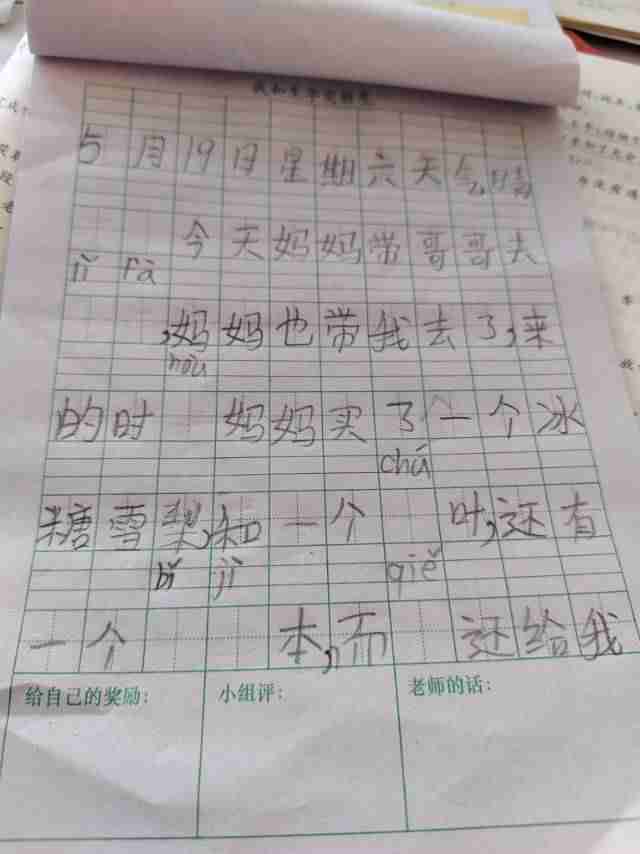 5月19日星期六天气晴
今天妈妈带哥哥去
jǐ fà
,妈妈也带我去了,来
hòu
的时 妈妈买了一个冰
chú
糖雪梨,和一个 叶,还有
bǐ jì qiě
一个 本,而 还给我
给自己的奖励: 小组评: 老师的话: